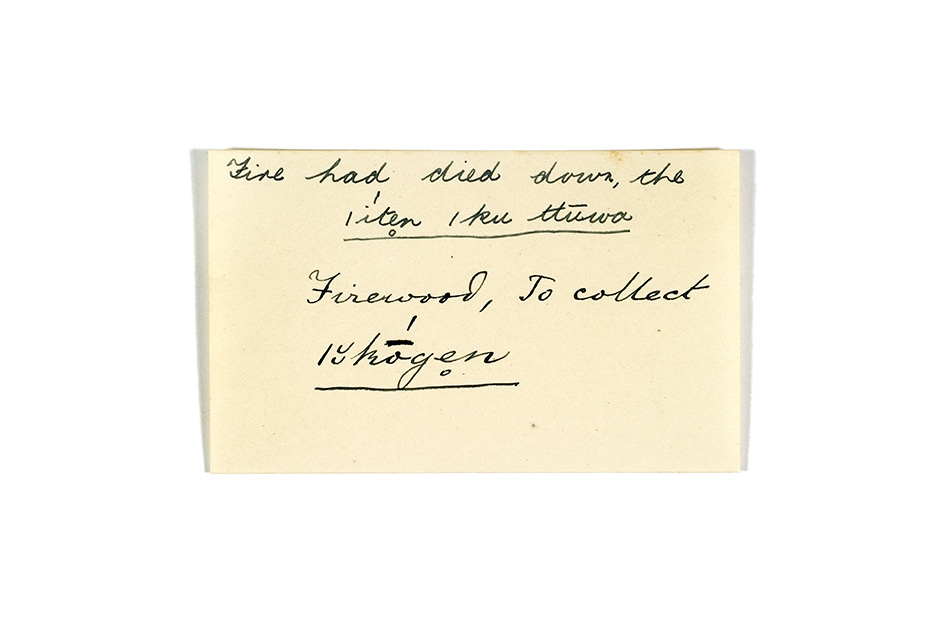 Fire had died down, the
ıíten̥ ıku ttūwa
Firewood, To collect
ıŭkṓgen̥